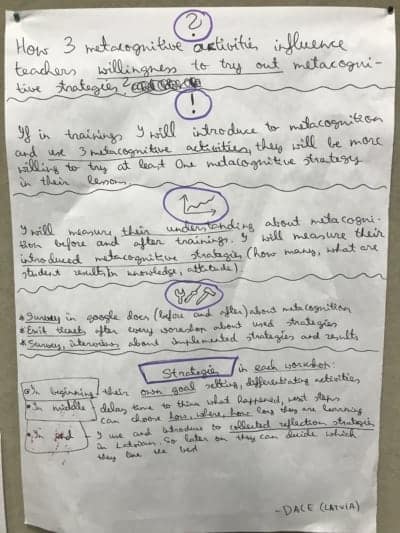 ?
How 3 metacognitive activities influence
teachers willingness to try out metacogni-
tive strategies?
!
If in trainings I will introduce to metacognition
and use 3 metacognitive activities, they will be more
willing to try at least one metacognitive strategy
in their lessons
I will measure their understanding about metacogni-
tion before and after trainings. I will measure their
introduced metacognitive strategies (how many, what are
student results in knowledge, attitude).
* Survey in google docs (before and after) about metacognition
* Exit tickets after every workshop about used strategies
* Survey, interviews about implemented strategies and results
Strategies in each workshop:
In beginning - their own goal setting, differentiating activities
In middle - delay time to think what happened, next steps
can choose how, where, how long they are learning
In end - I use and introduce to collected reflection strategies
in Latvian. So later on they can decide which
they like the best
- DACE (LATVIA)